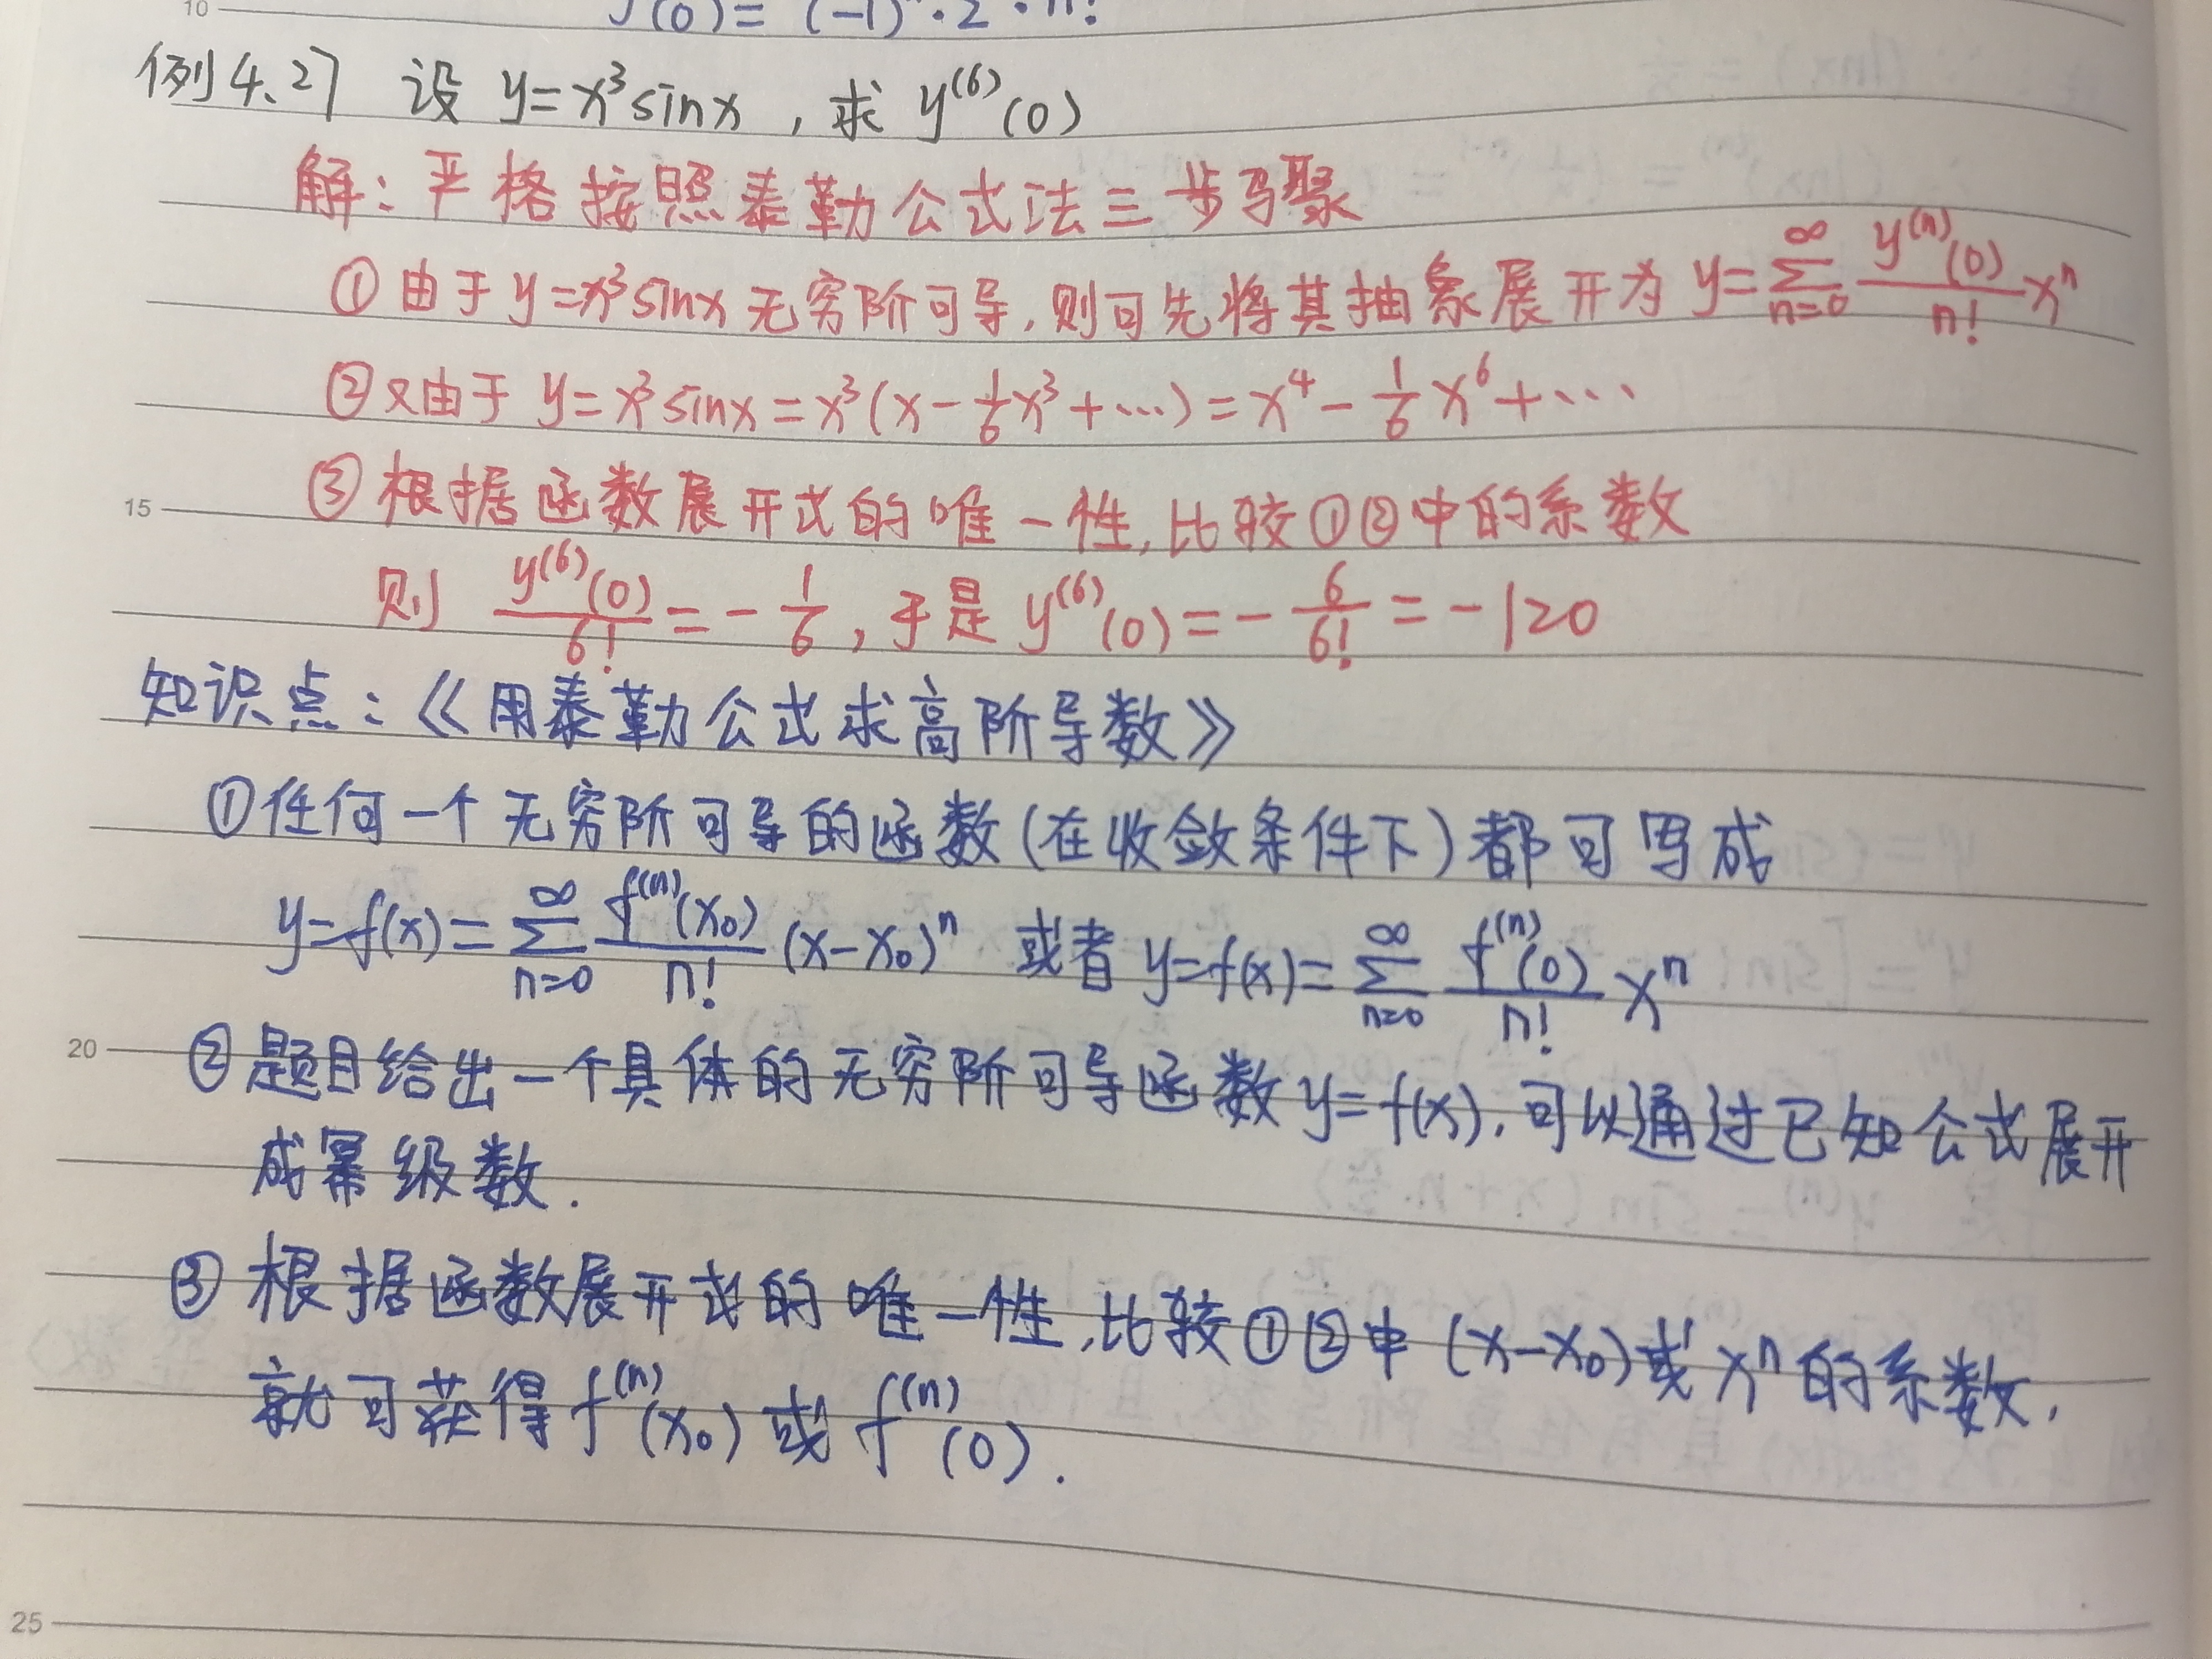 10
f(0) = (-1)ⁿ·2·n!
例4.27 设 y=x³sinx ，求 y⁽⁶⁾(0)
解：严格按照泰勒公式法三步骤
①由于y=x³sinx无穷阶可导,则可先将其抽象展开为 y=∑_{n=0}^{∞} y⁽ⁿ⁾(0)/n! xⁿ
②又由于 y=x³sinx=x³(x-1/6x³+⋯)=x⁴-1/6x⁶+⋯
15
③根据函数展开式的唯一性,比较①②中的系数
则 y⁽⁶⁾(0)/6! = -1/6 ,于是 y⁽⁶⁾(0)=-6/6!=-120
知识点：《用泰勒公式求高阶导数》
①任何一个无穷阶可导的函数(在收敛条件下)都可写成
y=f(x)=∑_{n=0}^{∞} f⁽ⁿ⁾(x₀)/n! (x-x₀)ⁿ 或者 y=f(x)=∑_{n=0}^{∞} f⁽ⁿ⁾(0)/n! xⁿ
20
②题目给出一个具体的无穷阶可导函数y=f(x),可以通过已知公式展开
成幂级数.
③根据函数展开式的唯一性,比较①②中(x-x₀)或xⁿ的系数,
就可获得f⁽ⁿ⁾(x₀)或f⁽ⁿ⁾(0).
25